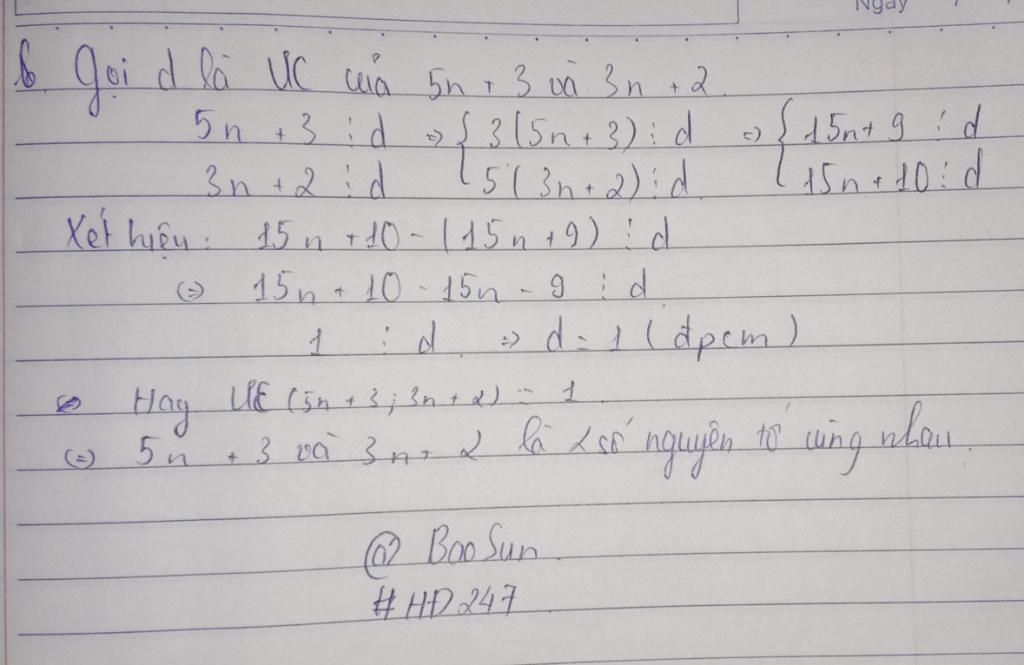 Ngày
6. Gọi d là ƯC của 5n + 3 và 3n + 2
5n + 3 ⋮ d => { 3(5n + 3) ⋮ d => { 15n + 9 ⋮ d
3n + 2 ⋮ d 5(3n + 2) ⋮ d 15n + 10 ⋮ d
Xét hiệu: 15n + 10 - (15n + 9) ⋮ d
(=) 15n + 10 - 15n - 9 ⋮ d
1 ⋮ d => d = 1 (đpcm)
Hay ƯC (5n + 3; 3n + 2) = 1
(=) 5n + 3 và 3n + 2 là 2 số nguyên tố cùng nhau.
@ Bao Sun.
#HĐ247